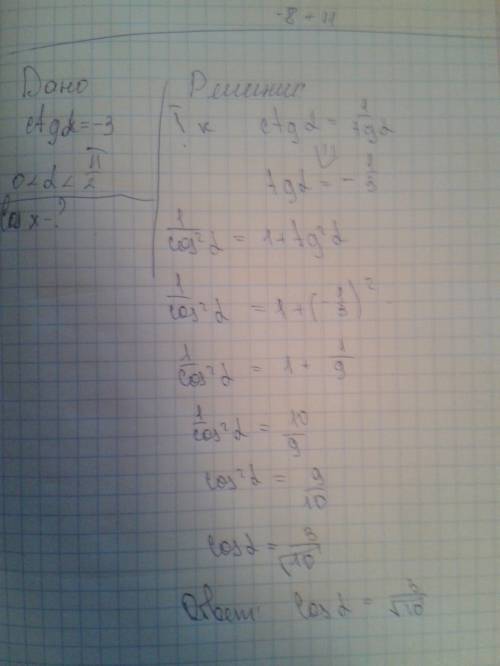 -8 + 11
Дано
ctgα=-3
0<α<π/2
cos x-?
Решение
Т к ctgα = 1/tgα
⇓
tgα = -1/3
1/cos²α = 1+tg²α
1/cos²α = 1+(-1/3)²
1/cos²α = 1+ 1/9
1/cos²α = 10/9
cos²α = 9/10
cosα = 3/√10
Ответ: cosα = 3/√10